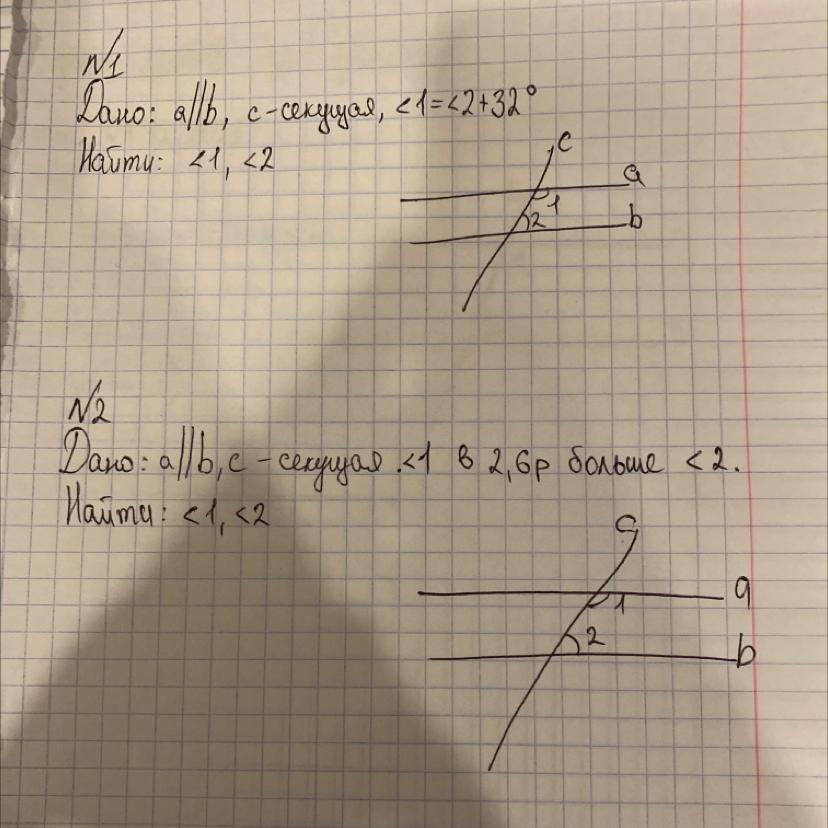 №1
Дано: a||b, c-секущая, <1=<2+32°
Найти: <1, <2
c
a
1
2
b
№2
Дано: a||b, c-секущая. <1 в 2,6р больше <2.
Найти: <1, <2
c
a
1
2
b